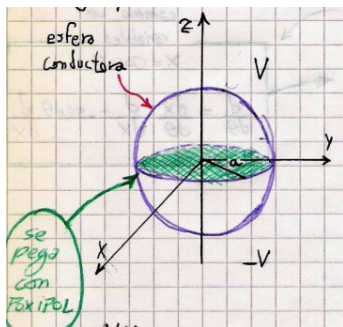 esfera
conductora
z
V
Y
a
X
-V
se
pega
con
POXIPOL